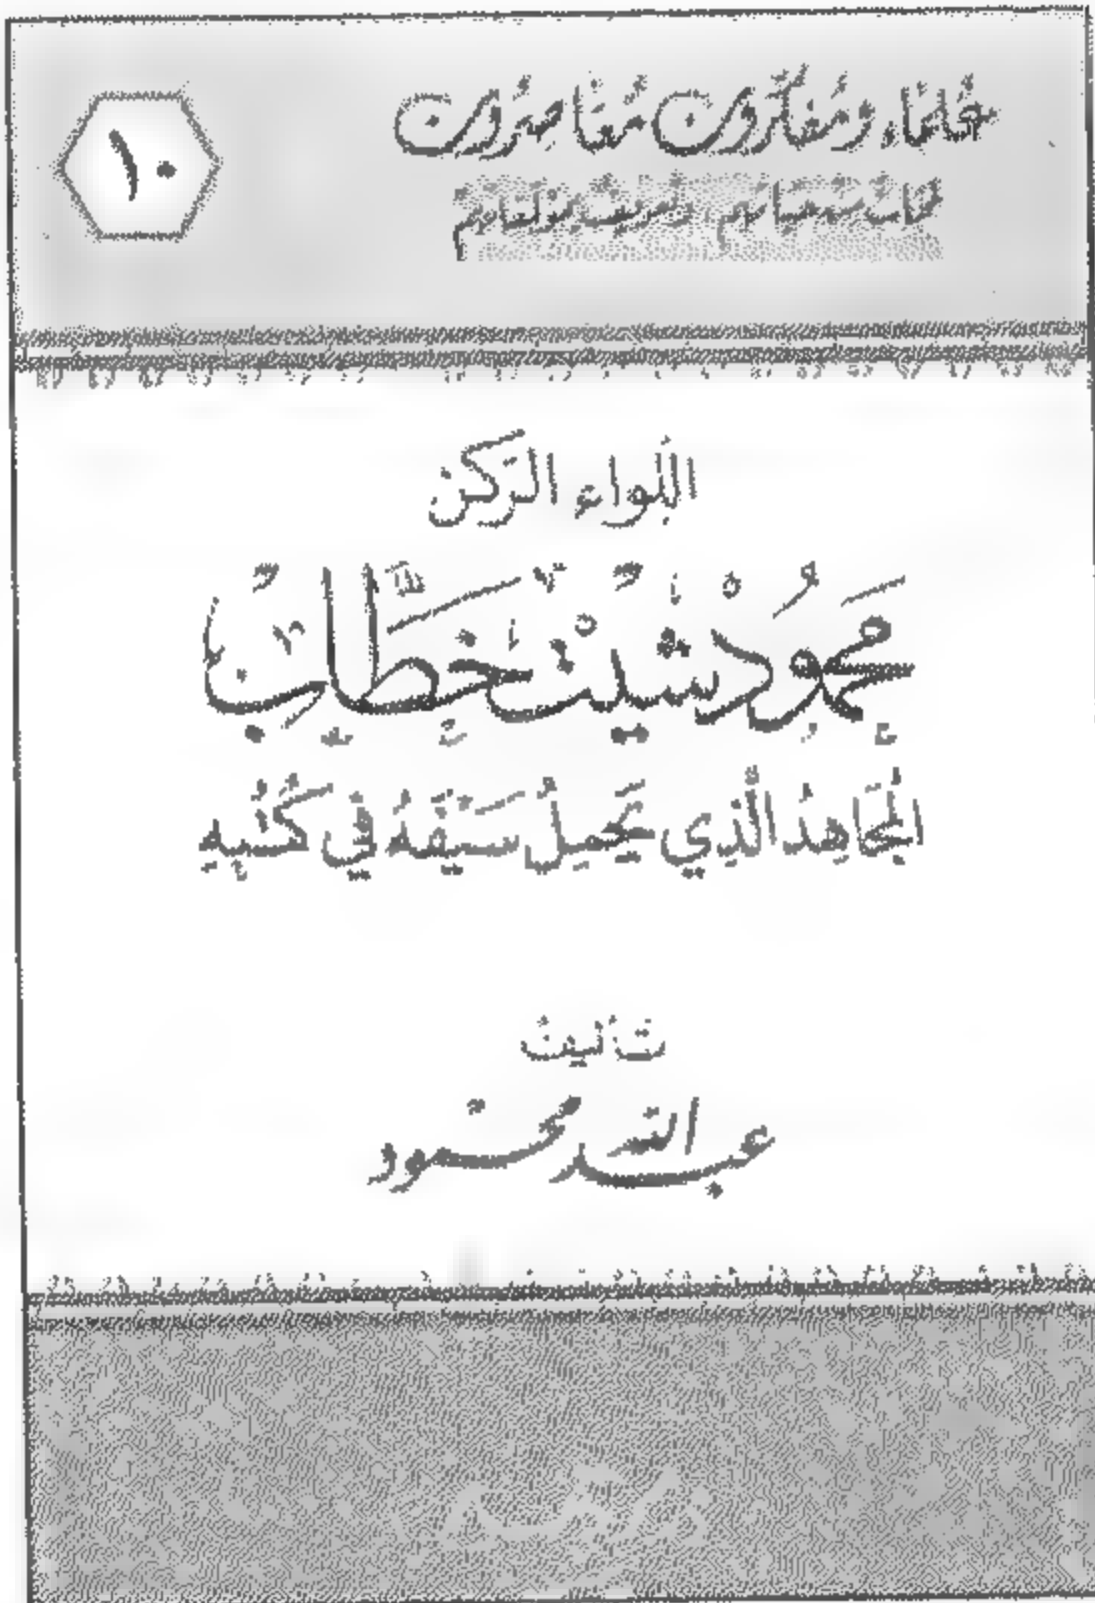 علماء ومفكرون معاصرون
لمحات من حياتهم وتعريف بمؤلفاتهم
١٠
اللواء الركن
محمود شيت خطاب
المجاهد الذي يحمل سيفه في كتبه
تأليف
عبد الله محمود